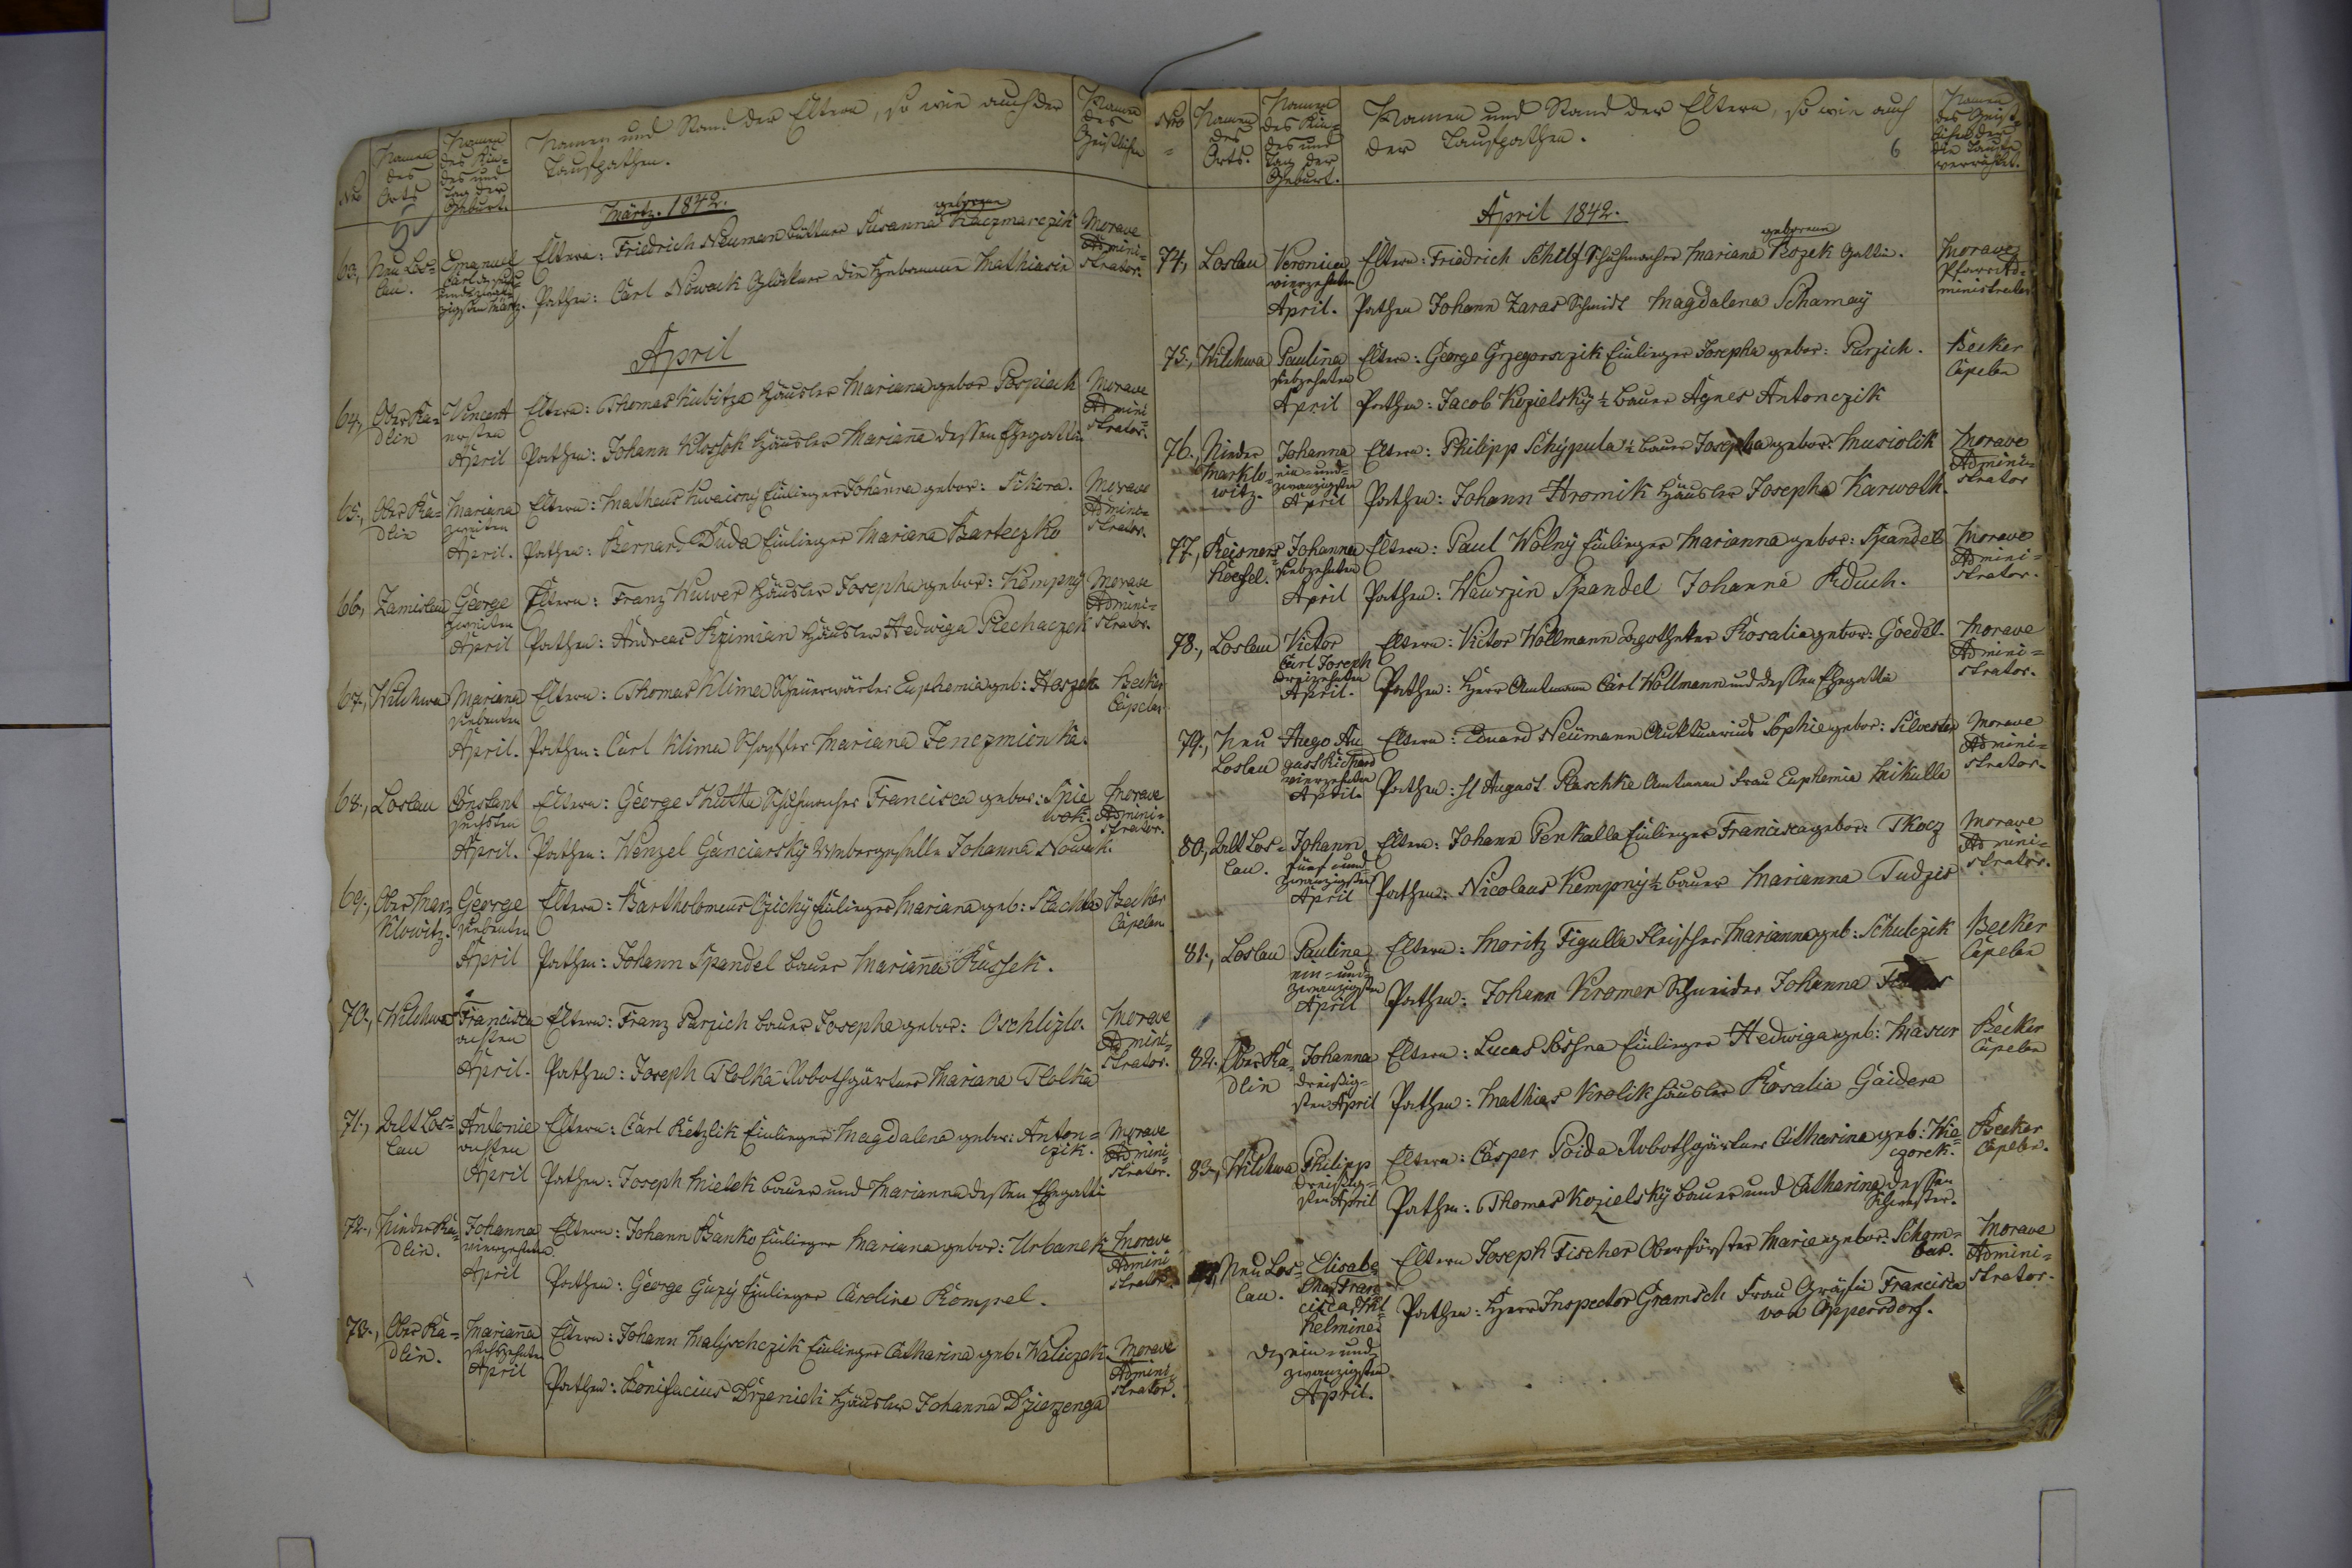 Nro
Namen des Orts
Namen des Kin=
des und
Tag der
Geburt.
Namen und Stand der Eltern, so wie auch der
Taufpathen.
Namen
des
Geistlichen
März. 1842.
63., Neu Los=
lau.
Emanuel
Carl
zigsten März.
Eltern: Friedrich Neuman Susanna geborene Kaczmarczik
Pathen: Carl Nowack Glöckner die Hebamme Mathiasin
Morave
Admini=
strator.
April
64., Ober Ra=
dlin
Vincent
ersten
April
Eltern: Thomas Kubitza Häusler Mariana gebor Pospiech
Pathen: Johann Klossek Häusler Marianna dessen Ehegattin
Morave
Admini
strator.
65., Ober Ra=
dlin
Mariana
zweiten
April.
Eltern: Matheus Kwaisny Einlieger Johanna gebor: Sikora.
Pathen: Bernard Duda Einlieger Mariana Barteczko
Morave
Admini=
strator.
66., Zamislau
George
zweiten
April
Eltern: Franz Wuwer Häusler Josepha gebor: Kempny
Pathen: Andreas Szimian Häusler Hedwiga Plechaczek
Morave
Admini=
strator.
67., Wilchwa
Mariana
siebenten
April.
Eltern: Thomas Klima Euphemia geb: Haszek
Pathen: Carl Klima Schaffer Mariana Jenczmionka.
Becker
Capelan
68., Loslau
Constant
sechsten
April.
Eltern: George Skutta Schuhmacher Francisca gebor: Spie
wok.
Pathen: Wenzel Ganciarsky Webergeselle Johanna Nowak.
Morave
Admini=
strator.
69., Ober Mar=
klowitz.
George
siebenten
April
Eltern: Bartholomeus Czichy Einlieger Mariana geb: Stachta
Pathen: Johann Spandel Bauer Marianna Russek.
Becker
Capelan
70., Wilchwa
Francisca
achten
April.
Eltern: Franz Parzich Bauer Josepha gebor: Oschlizlo.
Pathen: Joseph Tlolka Robothgärtner Mariana Tlolka
Morave
Admini=
strator.
71., Alt Los=
lau
Antonie
achten
April
Eltern: Carl Retzlik Einlieger Magdalena gebor: Anton=
czik.
Pathen: Joseph Mielek Bauer und Marianna dessen Ehegattin
Morave
Admini
strator.
72., Nieder Ra=
dlin.
Johanna
vierzehnten
April
Eltern: Johann Banko Einlieger Mariana gebor: Urbanek
Pathen: George Guzy Einlieger Caroline Rompel.
Morave
Admini
strator
73., Ober Ra=
dlin.
Marianna
sechszehnten
April
Eltern: Johann Malyschczik Einlieger Catharina geb: Waliczek.
Pathen: Bonifacius Drzenick Häusler Johanna Dzierzenga
Morave
Admini
strator.
Nro
Namen
des
Orts.
Namen
des Kin=
des und
Tag der
Geburt.
Namen und Stand der Eltern, so wie auch
der Taufpathen.
6
Namen
des Geist=
lichen der
die Taufe
verrichtet.
April 1842.
74., Loslau
Veronica
vierzehnten
April.
Eltern: Friedrich Scholz Schuhmacher Mariana geborene Bozek Gattin.
Pathen Johann Zaras Schmidt Magdalena Schamay
Morave
Pfarr Ad=
ministrator
75., Wilchwa
Paulina
siebzehnten
April
Eltern: George Grzegorczik Einlieger Josepha gebor: Parzich.
Pathen: Jacob Kozielsky ½ Bauer Agnes Antonczik
Becker
Capelan
76., Nieder
Marklo=
witz.
Johanna
ein=und=
zwanzigsten
April
Eltern: Philipp Schypula ½ Bauer Josepha gebor: Musiolik
Pathen: Johann Hromik Häusler Josepha Karwoth.
Morave
Admini=
strator
77., Reisners
Koessel.
Johanna
siebzehnten
April
Eltern: Paul Wolny Einlieger Marianna gebor: Spandel
Pathen: Wawrzin Spandel Johanna Kduch.
Morave
Admini=
strator.
78., Loslau
Victor
Carl Joseph
dreizehnten
April.
Eltern: Victor Wollmann Apotheker Rosalia gebor: Goedel.
Pathen: Herr Amtmann Carl Wollmann und dessen Ehegattin
Morave
Admini=
strator.
79., Neu
Loslau
Hugo Au
gust Richard
vierzehnten
April.
Eltern: Eduard Neumann Auktuarius Sophie gebor: Silvester
Pathen: H August Plaschke Amtmann Frau Euphemia Mikulla
Morave
Admini=
strator.
80., Alt Los=
lau.
Johann
fünf=und
zwanzigsten
April
Eltern: Johann Penkalla Einlieger Francisca gebor: Tkocz
Pathen: Nicolaus Kempny ½ Bauer Marianna Tudzis
Morave
Admini=
strator.
81., Loslau
Paulina
ein=und
zwanzigsten
April
Eltern: Moritz Figulla Fleischer Marianna geb: Schulczik
Pathen: Johann Kromer Schneider Johanna
Becker
Capelan
82. Ober Ra=
dlin
Johanna
dreißig=
sten April
Eltern: Lucas Sossna Einlieger Hedwiga geb: Masur
Pathen: Mathias Krolik Häusler Rosalia Gaidera
Becker
Capelan
83., Wilchwa
Philipp
dreißig=
sten April
Eltern: Casper Poida Robothgärtner Catharina geb: Wie=
czorek.
Pathen: Thomas Kozielsky Bauer und Catharina dessen
Schwester.
Becker
Capelan.
Neu Los=
lau.
Elisabe=
tha Fran
cisca Wil=
helmine
ein=und
zwanzigsten
April.
Eltern Joseph Fischer Oberförster Marie gebor: Schom=
bar.
Pathen: Herr Inspector Gramsch Frau Gräfin Francisca
von Oppersdorf.
Morave
Admini=
strator.